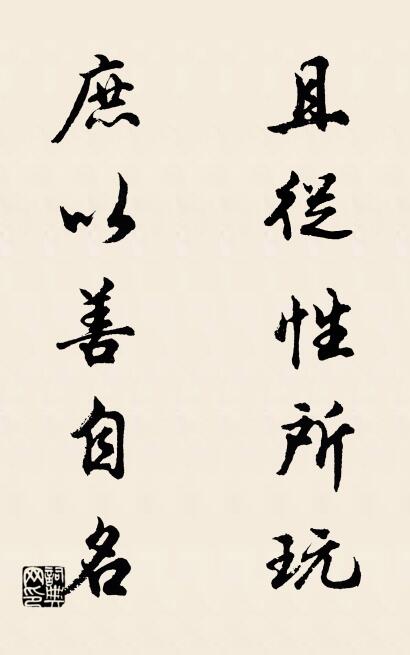 且從性所玩
庶以善自名
詞典網印